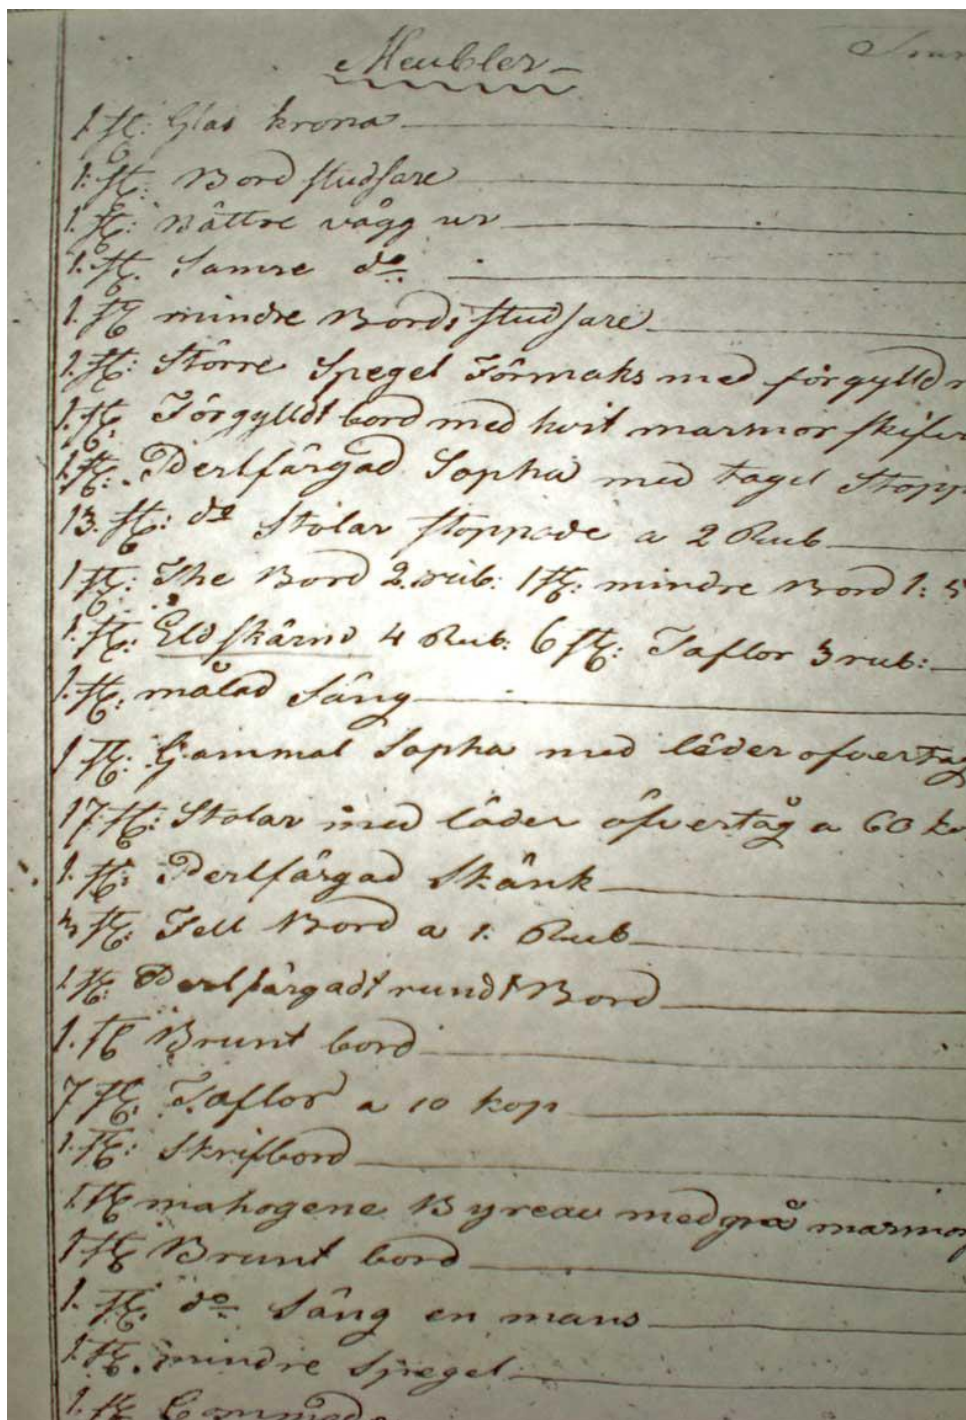 Meubler
1 st: Glas krona
1: st: Bord studsare
1. st: Bättre vägg ur
1. st. Sämre do
1. st mindre Bords studsare
1. st: Större Spegel Förmaks med förgylld r
1. st Förgylldt bord med hvit marmor skifv
1 st: Perlfärgad Sopha med tagel Stopp
13. st: do Stolar stoppade a 2 Rub
1 st: The Bord 2. rub: 1 st: mindre Bord 1: 5
1. st: Eld skärm 4 Rub: 6 st: Taflor 3 rub:
1. st: målad Säng
1 st: Gammal Sopha med läder öfvertåg
17 st: Stolar med läder öfvertåg a 60 ko
1. st: Perlfärgad Skänk
3 st: Fell Bord a 1. Rub
1 st: Perlfärgadt rundt Bord
1. st Brunt bord
7 st. Taflor a 10 kop
1. st: Skrifbord
1 st mahogene Byreau med grå marmor
1 st Brunt bord
1. st. do Säng en mans
1 st. mindre Spegel
1. st